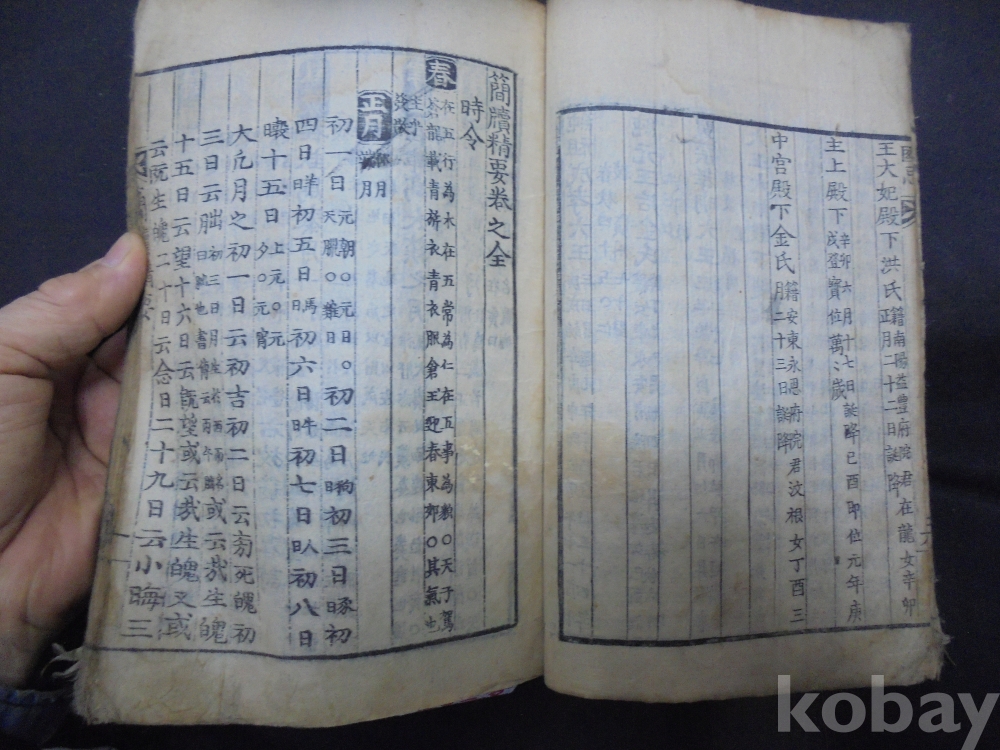 王大妃殿下洪氏 籍南陽益豊府院君在龍女辛卯
正月二十二日誕降
主上殿下 辛卯六月十七日誕降己酉即位元年庚
戌登寶位萬〻歲
中宮殿下金氏 籍安東永恩府院君汶根女丁酉三
月二十三日誕降
簡牘精要卷之全
時令
春 在五行為木在五常為仁在五事為貌○天子駕
蒼龍載青旂衣青衣服倉玉迎春東郊○其氣也
發散
正月
初一日 元朝○○元日○
天臘○雞日 初二日 狗日 初三日 豕日 初
四日 羊日 初五日 馬日 初六日 牛日 初七日 人日 初八日
穀日 十五日 上元○○元
夕○元宵
大凢月之初一日云初吉初二日云旁死魄初
三日云朏 或云哉生魄
十五日云望十六日云旣望或云哉生魄又或
云旣生魄二十日云念日二十九日云小晦三
kobay